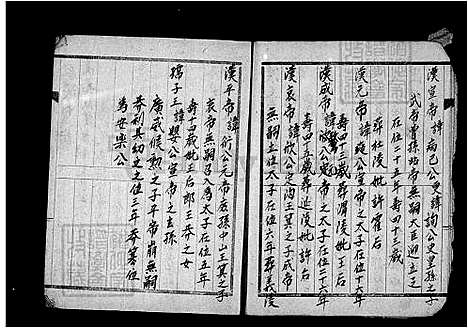 漢宣帝諱病己公更諱詢公史皇孫之子
武帝曾孫站帝無嗣大臣迎立之
在位二十五年壽四十三歲
葬杜陵妣許霍后
漢元帝諱奭公宣帝之太子在位十六年
壽四十三歲葬渭陵妣王后
漢成帝諱驁公元帝之太子在位二十六年
壽四十五歲葬延陵妣許后
漢哀帝諱欣公定陶王翼之子成帝
無嗣立位太子在位六年葬義陵
漢平帝諱衍公元帝庶孫中山王箕之子
哀帝無嗣召為太子在位五年
壽十四歲妣王后郎王莽之女
孺子三諱嬰公宣帝之玄孫
廣威候勲之子平帝崩無嗣
莽利其幼文之位三年莽篡位
為安樂公